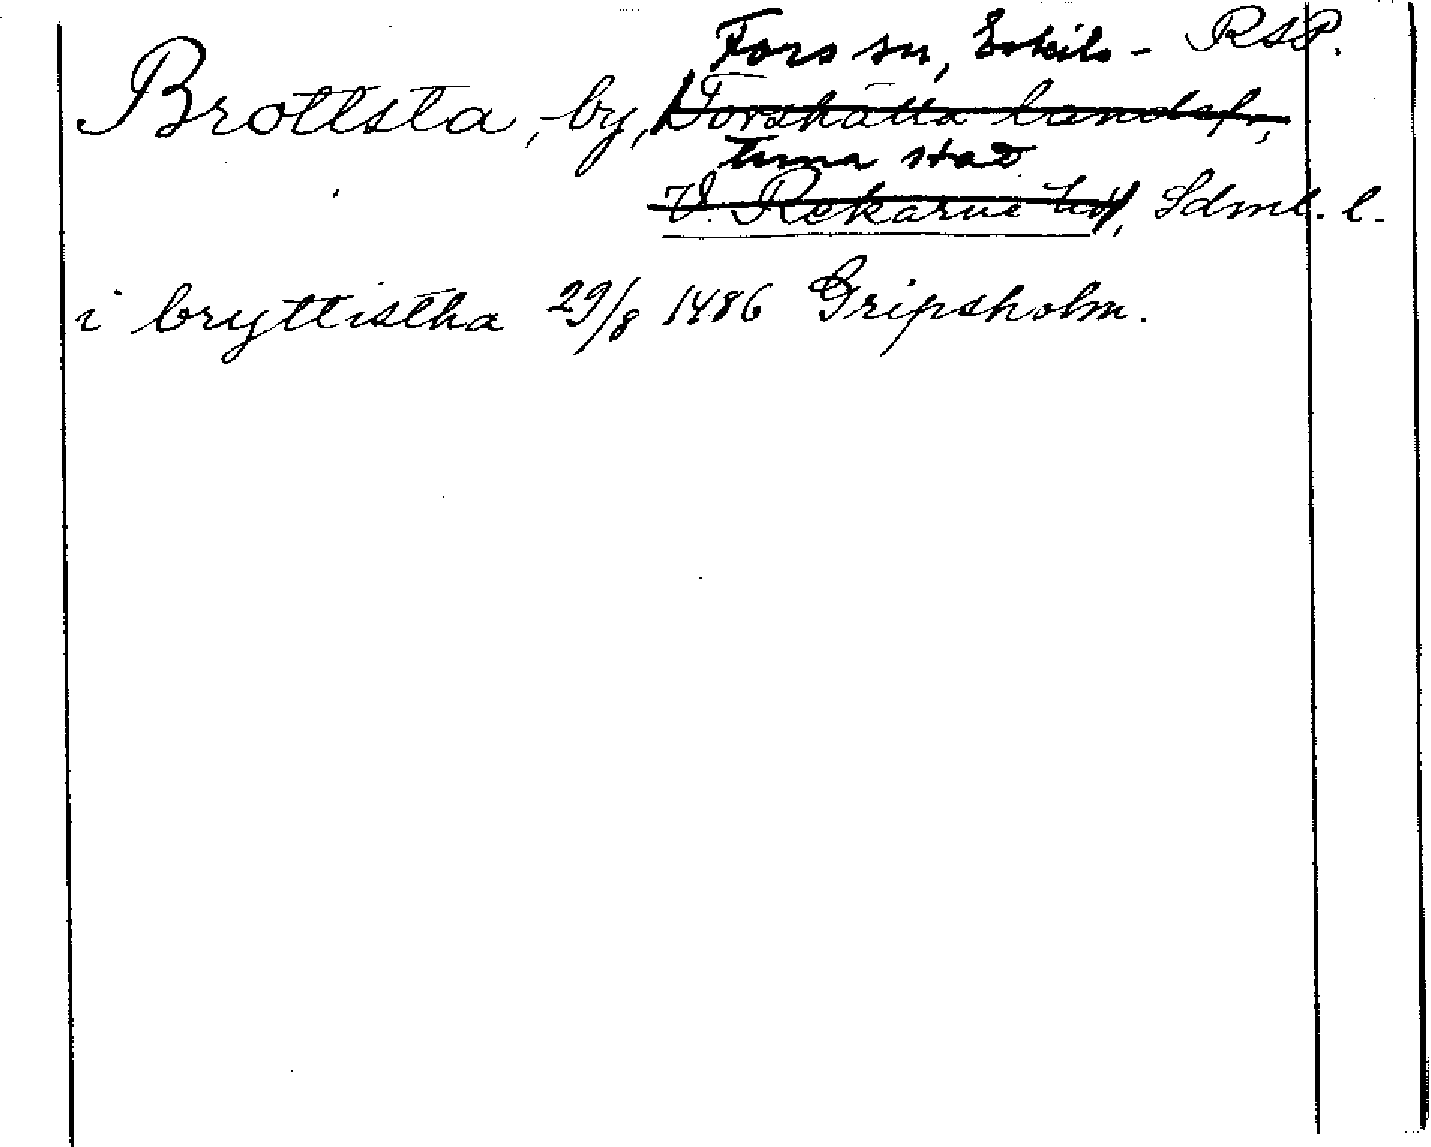 Fors sn, Eskils- RAP.
Brottsta, by, Torshälla landsf.,
tuna stad
V. Rekarne hd, Sdml. l.
i bryttistha 29/8 1486 Gripsholm.